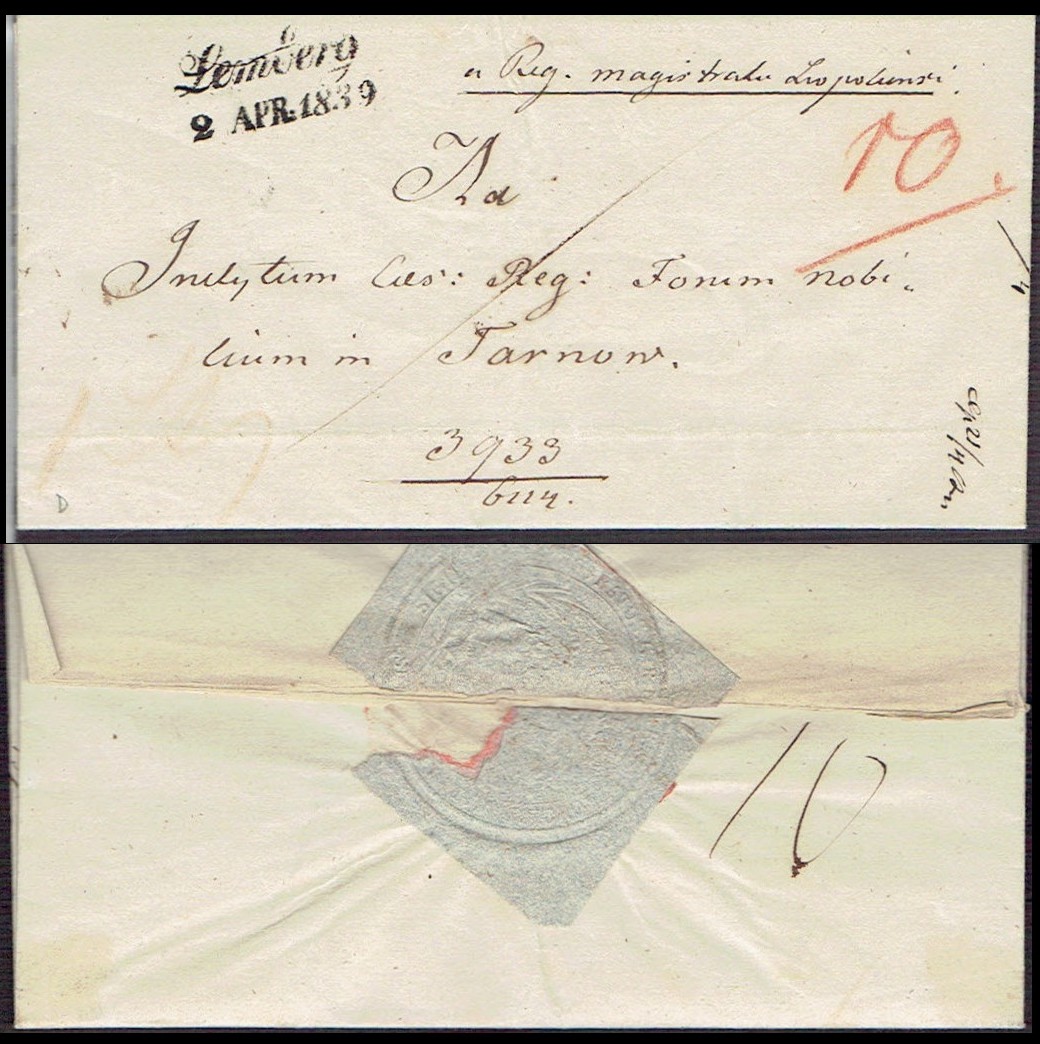 Lemberg
2 APR. 1839
a Reg. magistratu Leopoliensi.
10
Ad
Inclytum Cæs: Reg: Forum nobi
lium in Tarnow.
3933
D
10